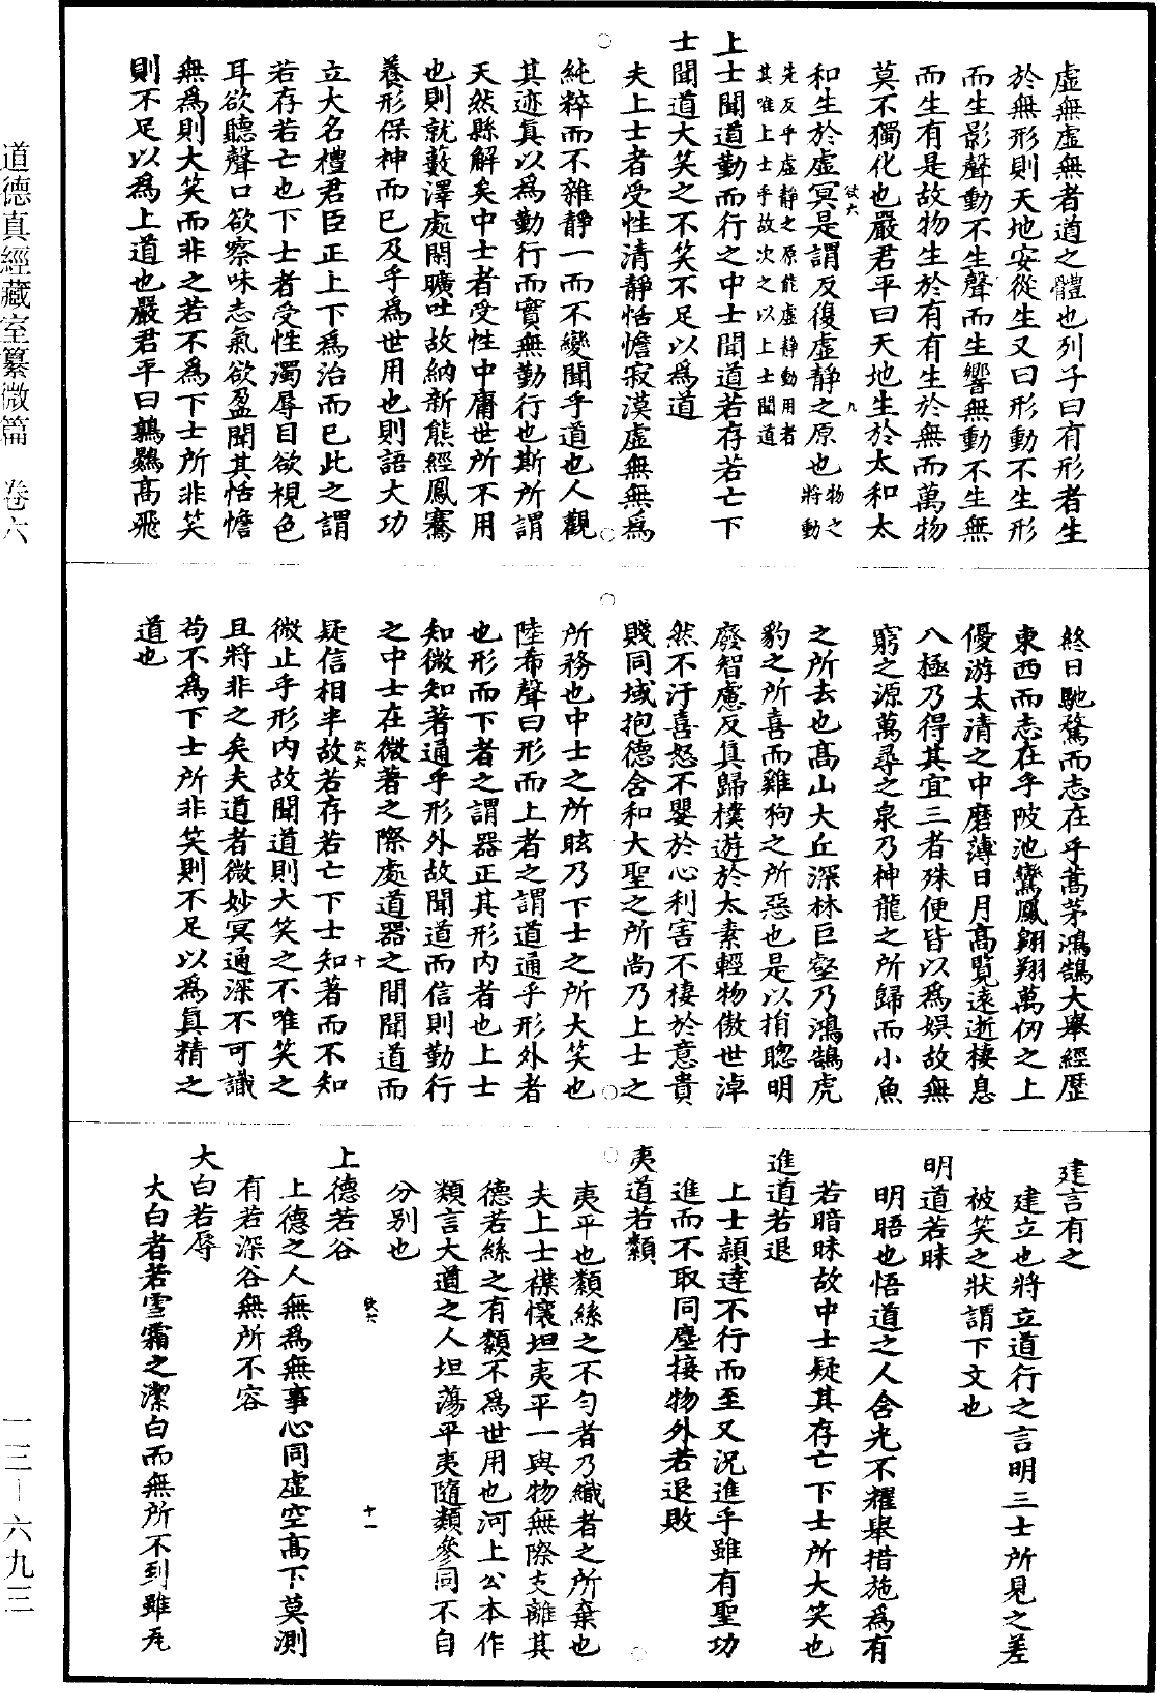 虛無虛無者道之體也列子曰有形者生
於無形則天地安從生又曰形動不生形
而生影聲動不生聲而生響無動不生無
而生有是故物生於有有生於無而萬物
莫不獨化也嚴君平曰天地生於太和太
和生於虛冥是謂反復虛靜之原也物之將動
先反乎虛靜之原能虛靜動用者
其唯上士乎故次之以上士聞道
上士聞道勤而行之中士聞道若存若亡下
士聞道大笑之不笑不足以爲道
夫上士者受性清靜恬憺寂漠虛無無爲
純粹而不雜靜一而不變聞乎道也人觀
其迹眞以爲勤行而實無勤行也斯所謂
天然縣解矣中士者受性中庸世所不用
也則就藪澤處閑曠吐故納新熊經鳳騫
養形保神而已及乎爲世用也則語大功
立大名禮君臣正上下爲治而已此之謂
若存若亡也下士者受性濁辱目欲視色
耳欲聽聲口欲察味志氣欲盈聞其恬憺
無爲則大笑而非之若不爲下士所非笑
則不足以爲上道也嚴君平曰鶉鷃高飛
終日馳騖而志在乎蒿茅鴻鵠大舉經歷
東西而志在乎陂池鸞鳳翺翔萬仞之上
優游太清之中磨薄日月高覽遠逝棲息
八極乃得其宜三者殊便皆以爲娛故無
窮之源萬尋之泉乃神龍之所歸而小魚
之所去也高山大丘深林巨壑乃鴻鵠虎
豹之所喜而雞狗之所惡也是以捐聰明
廢智慮反眞歸樸遊於太素輕物傲世淖
然不汙喜怒不嬰於心利害不棲於意貴
賤同域抱德含和大聖之所尚乃上士之
所務也中士之所眩乃下士之所大笑也
陸希聲曰形而上者之謂道通乎形外者
也形而下者之謂器正其形內者也上士
知微知著通乎形外故聞道而信則勤行
之中士在微著之際處道器之間聞道而
疑信相半故若存若亡下士知著而不知
微止乎形內故聞道則大笑之不唯笑之
且將非之矣夫道者微妙冥通深不可識
苟不爲下士所非笑則不足以爲眞精之
道也
建言有之
建立也將立道行之言明三士所見之差
被笑之狀謂下文也
明道若昧
明晤也悟道之人含光不耀舉措施爲有
若暗昧故中士疑其存亡下士所大笑也
進道若退
上士頴達不行而至又況進乎雖有聖功
進而不取同塵接物外若退敗
夷道若纇
夷平也纇絲之不勻者乃織者之所棄也
夫上士襟懷坦夷平一與物無際支離其
德若絲之有纇不爲世用也河上公本作
類言大道之人坦蕩平夷隨類參同不自
分別也
上德若谷
上德之人無爲無事心同虛空高下莫測
有若深谷無所不容
大白若辱
大白者若雪霜之潔白而無所不到雖汚
道德真經藏室纂微篇　卷六
一三—六九三